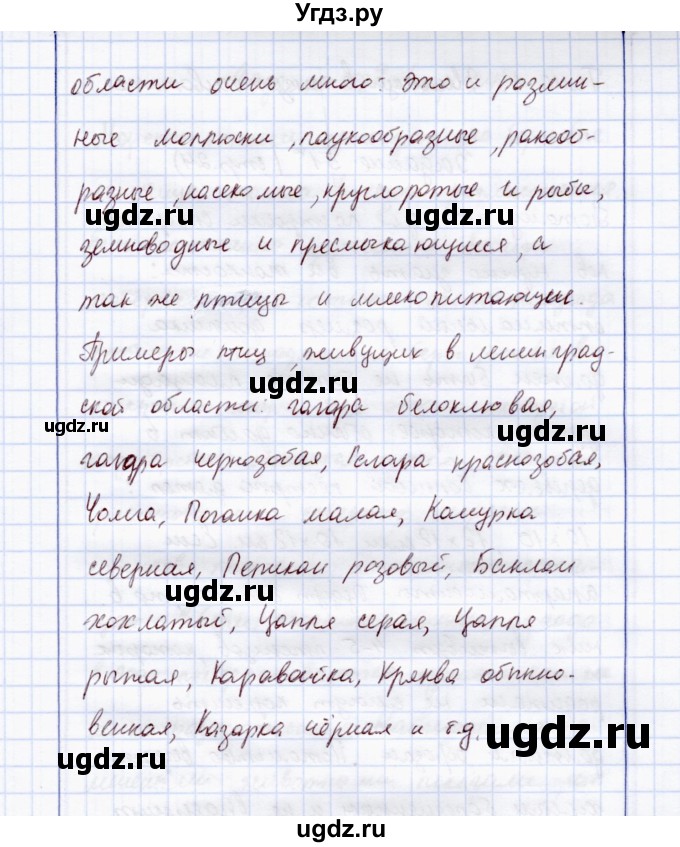 Угдз.ру
области очень много: это и различ-
ные моллюски, паукообразные, ракооб-
разные, насекомые, круглоротые и рыбы,
ugdz.ru ugdz.ru
земноводные и пресмыкающиеся, а
так же птицы и млекопитающие.
Примеры птиц, живущих в ленинград-
ugdz.ru
ской области: гагара белоклювая,
ugdz.ru ugdz.ru
гагара чернозобая, Гагара краснозобая,
Чомга, Поганка малая, Качурка
северная, Пеликан розовый, Баклан
ugdz.ru
хохлатый, Цапля серая, Цапля
рыжая, Каравайка, Кряква обыкно-
венная, Казарка чёрная и т.д.
ugdz.ru ugdz.ru
ugdz.ru